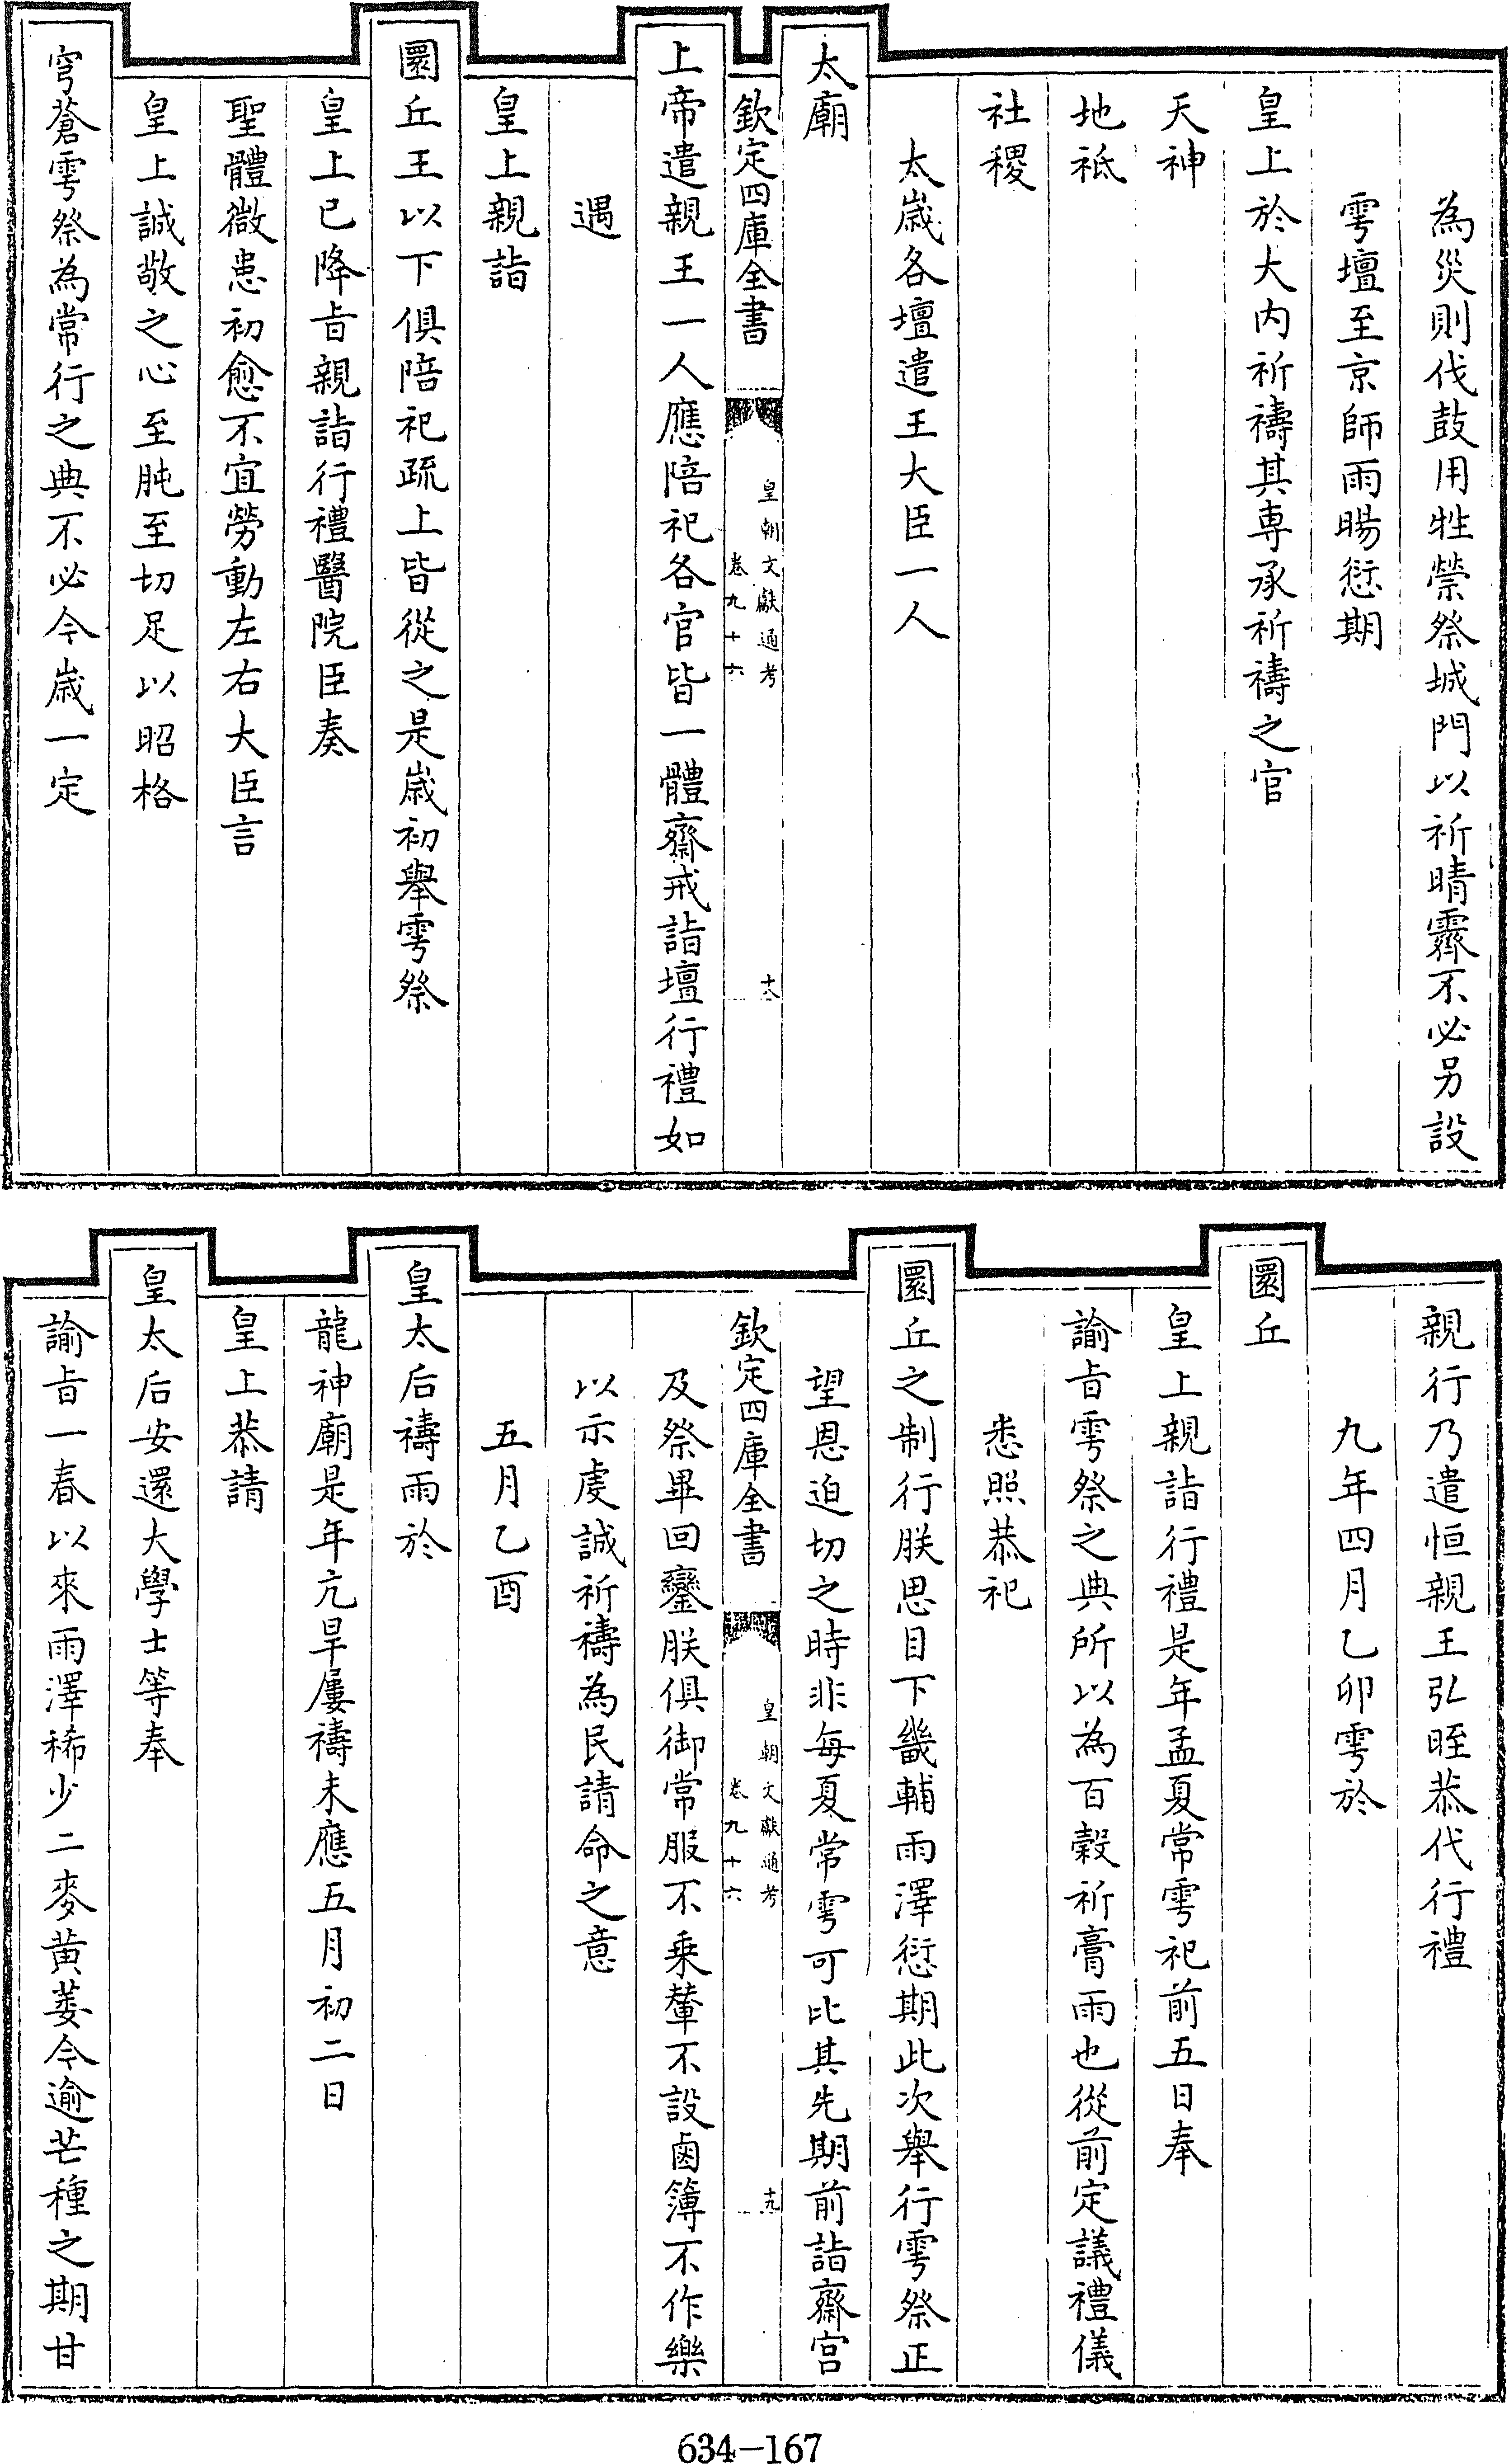 為災則伐鼓用牲禜祭城門以祈晴霽不必另設
雩壇至京師雨暘愆期
皇上於大内祈禱其専承祈禱之官
天神
地祗
社稷
太歳各壇遣王大臣一人
太廟
欽定四庫全書
皇朝文獻通考
卷九十六
十八
上帝遣親王一人應陪祀各官皆一體齋戒詣壇行禮如
遇
皇上親詣
圜丘王以下俱陪祀疏上皆從之是歳初舉雩祭
皇上已降㫖親詣行禮醫院臣奏
聖體微恙初愈不宜勞動左右大臣言
皇上誠敬之心至肫至切足以昭格
穹蒼雩祭為常行之典不必今歳一定
親行乃遣恒親王弘晊恭代行禮
九年四月乙卯雩於
圜丘
皇上親詣行禮是年孟夏常雩祀前五日奉
諭㫖雩祭之典所以為百穀祈膏雨也從前定議禮儀
悉照恭祀
圜丘之制行朕思目下畿輔雨澤愆期此次舉行雩祭正
望恩迫切之時非每夏常雩可比其先期前詣齋宫
欽定四庫全書
皇朝文獻通考
卷九十六
十九
及祭畢回鑾朕俱御常服不乗輦不設鹵簿不作樂
以示虔誠祈禱為民請命之意
五月乙酉
皇太后禱雨於
龍神廟是年亢旱屢禱未應五月初二日
皇上恭請
皇太后安還大學士等奉
諭㫖一春以來雨澤稀少二麥黄萎今逾芒種之期甘
634-167